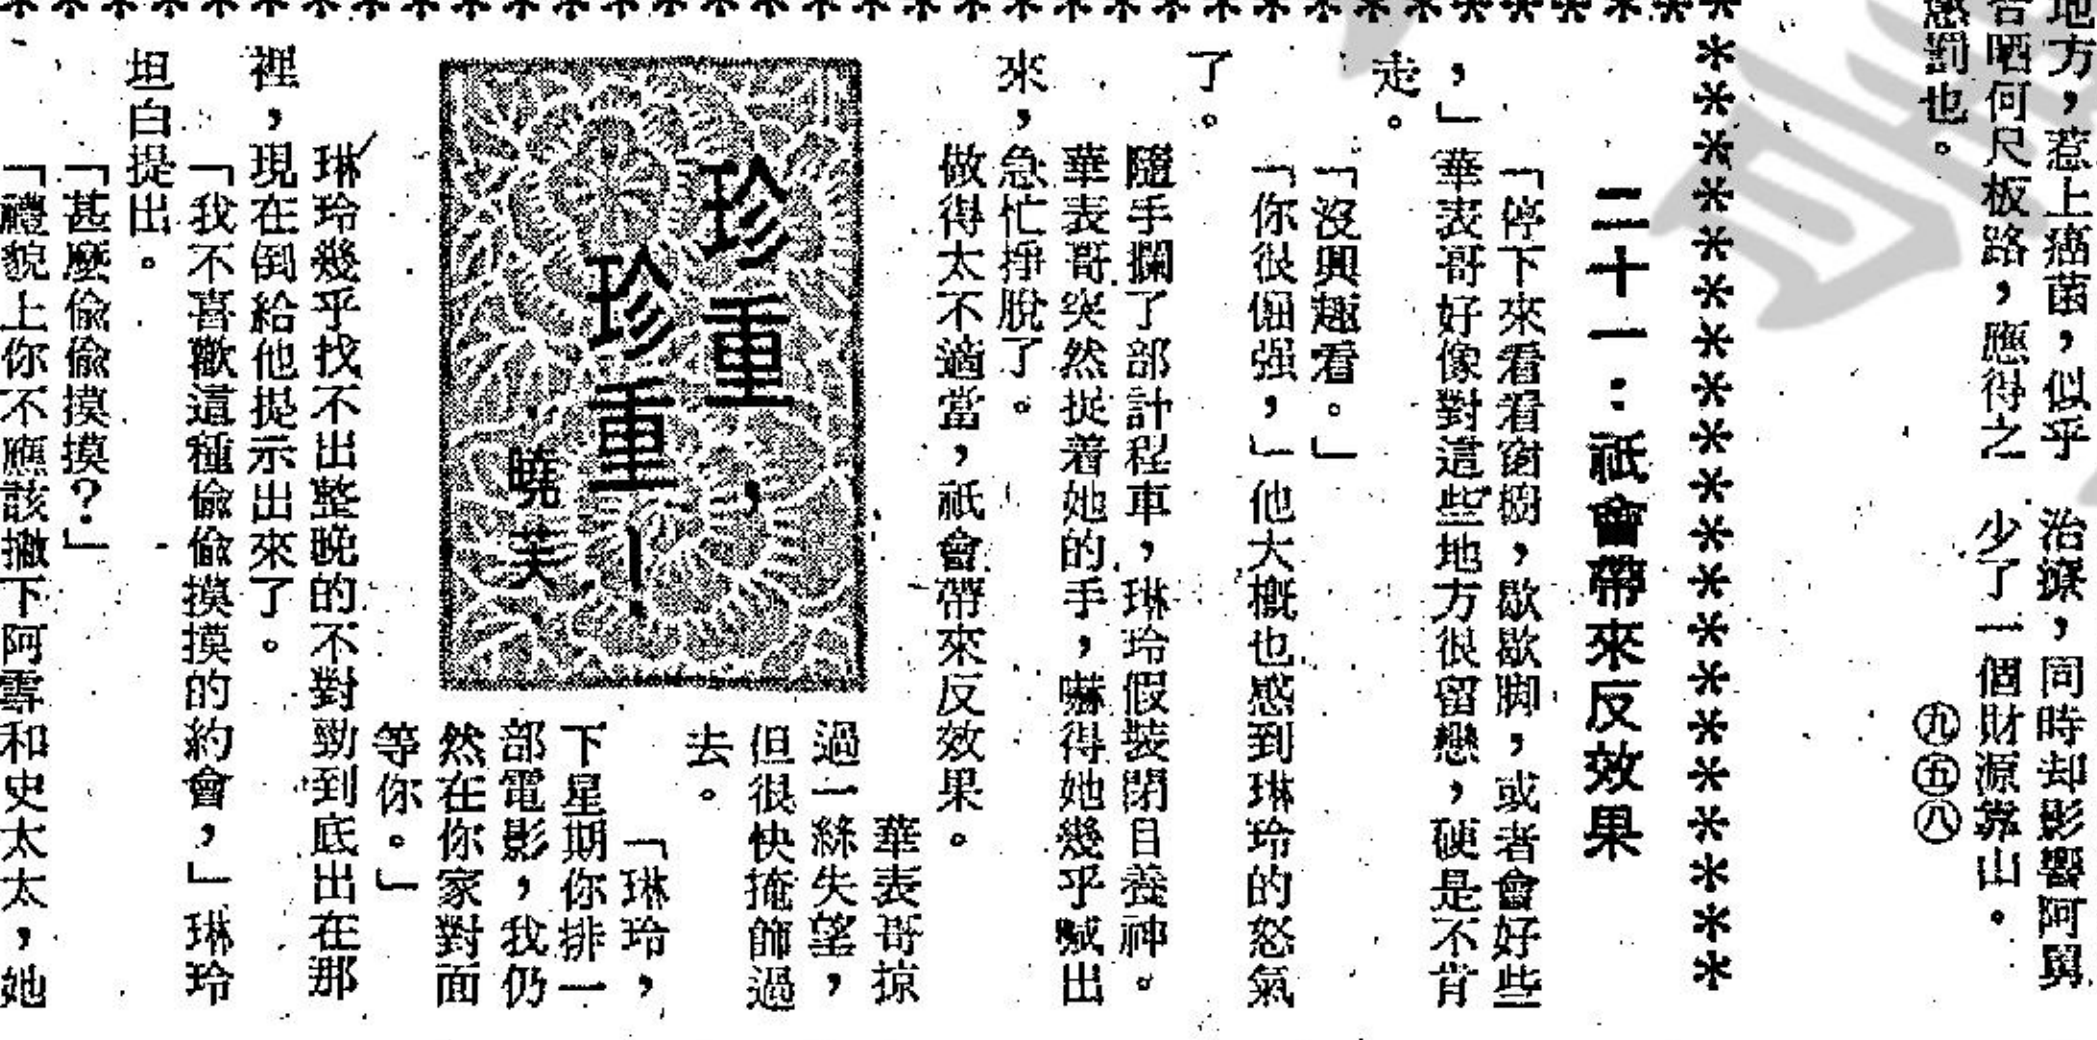 地方，惹上痞菌，似乎
哂何尺板路，應得之
懲罰也。
治療，同時却影響阿舅
少了一個財源靠山。
九五八
二十一：祇會帶來反效果
「停下來看看窗櫥，歇歇脚，或者會好些
，」華表哥好像對這些地方很留戀，硬是不肯
走。
「沒興趣看。」
「你很倔强，」他大概也感到琳玲的怒氣
了。
隨手攔了部計程車，琳玲假裝閉目養神。
華表哥突然捉着她的手，嚇得她幾乎喊出
來，急忙掙脫了。
做得太不適當，祇會帶來反效果。
珍重，
珍重！
曉芙
華表哥掠
過一絲失望，
但很快掩飾過
去。
「琳玲，
下星期你排一
部電影，我仍
然在你家對面
等你。」
琳玲幾乎找不出整晚的不對勁到底出在那
裡，現在倒給他提示出來了。
「我不喜歡這種偷偷摸摸的約會，」琳玲
坦白提出。
「甚麼偷偷摸摸？」
「禮貌上你不應該撇下阿雲和史太太，她